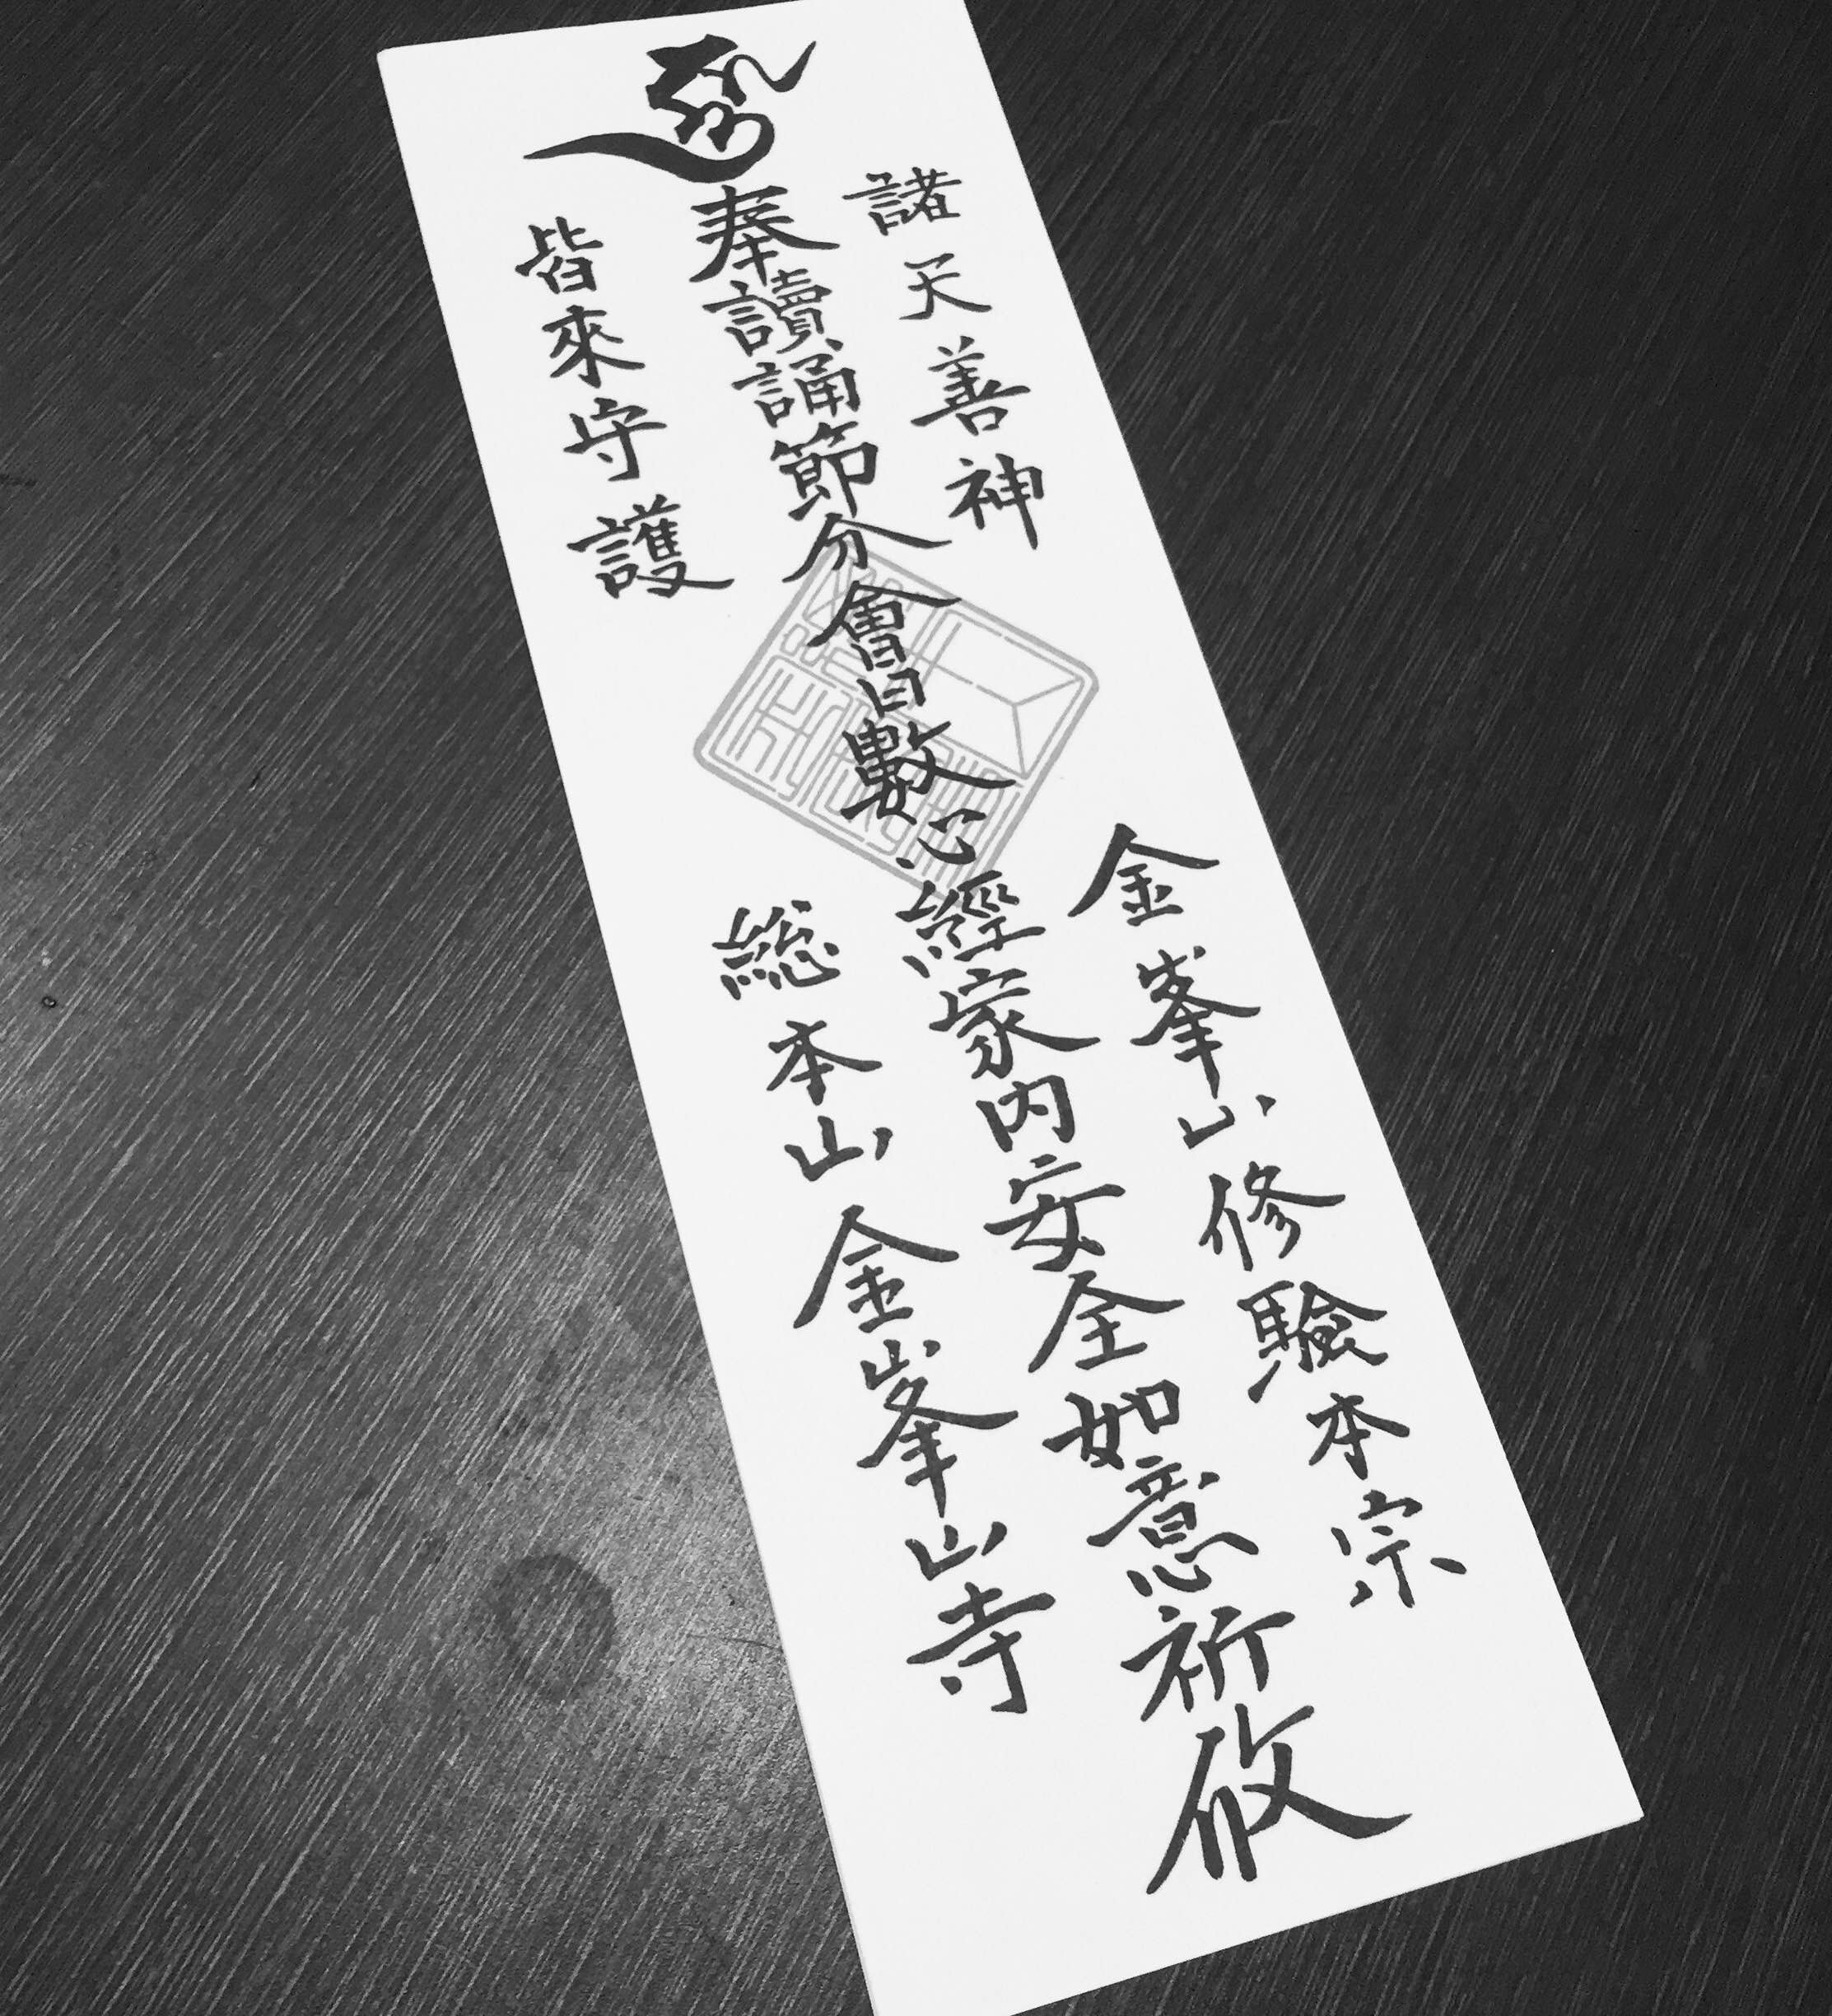 諸天善神
金峯山修驗本宗
奉讀誦節分會日數心經家内安全如意祈攸
皆來守護
総本山金峯山寺